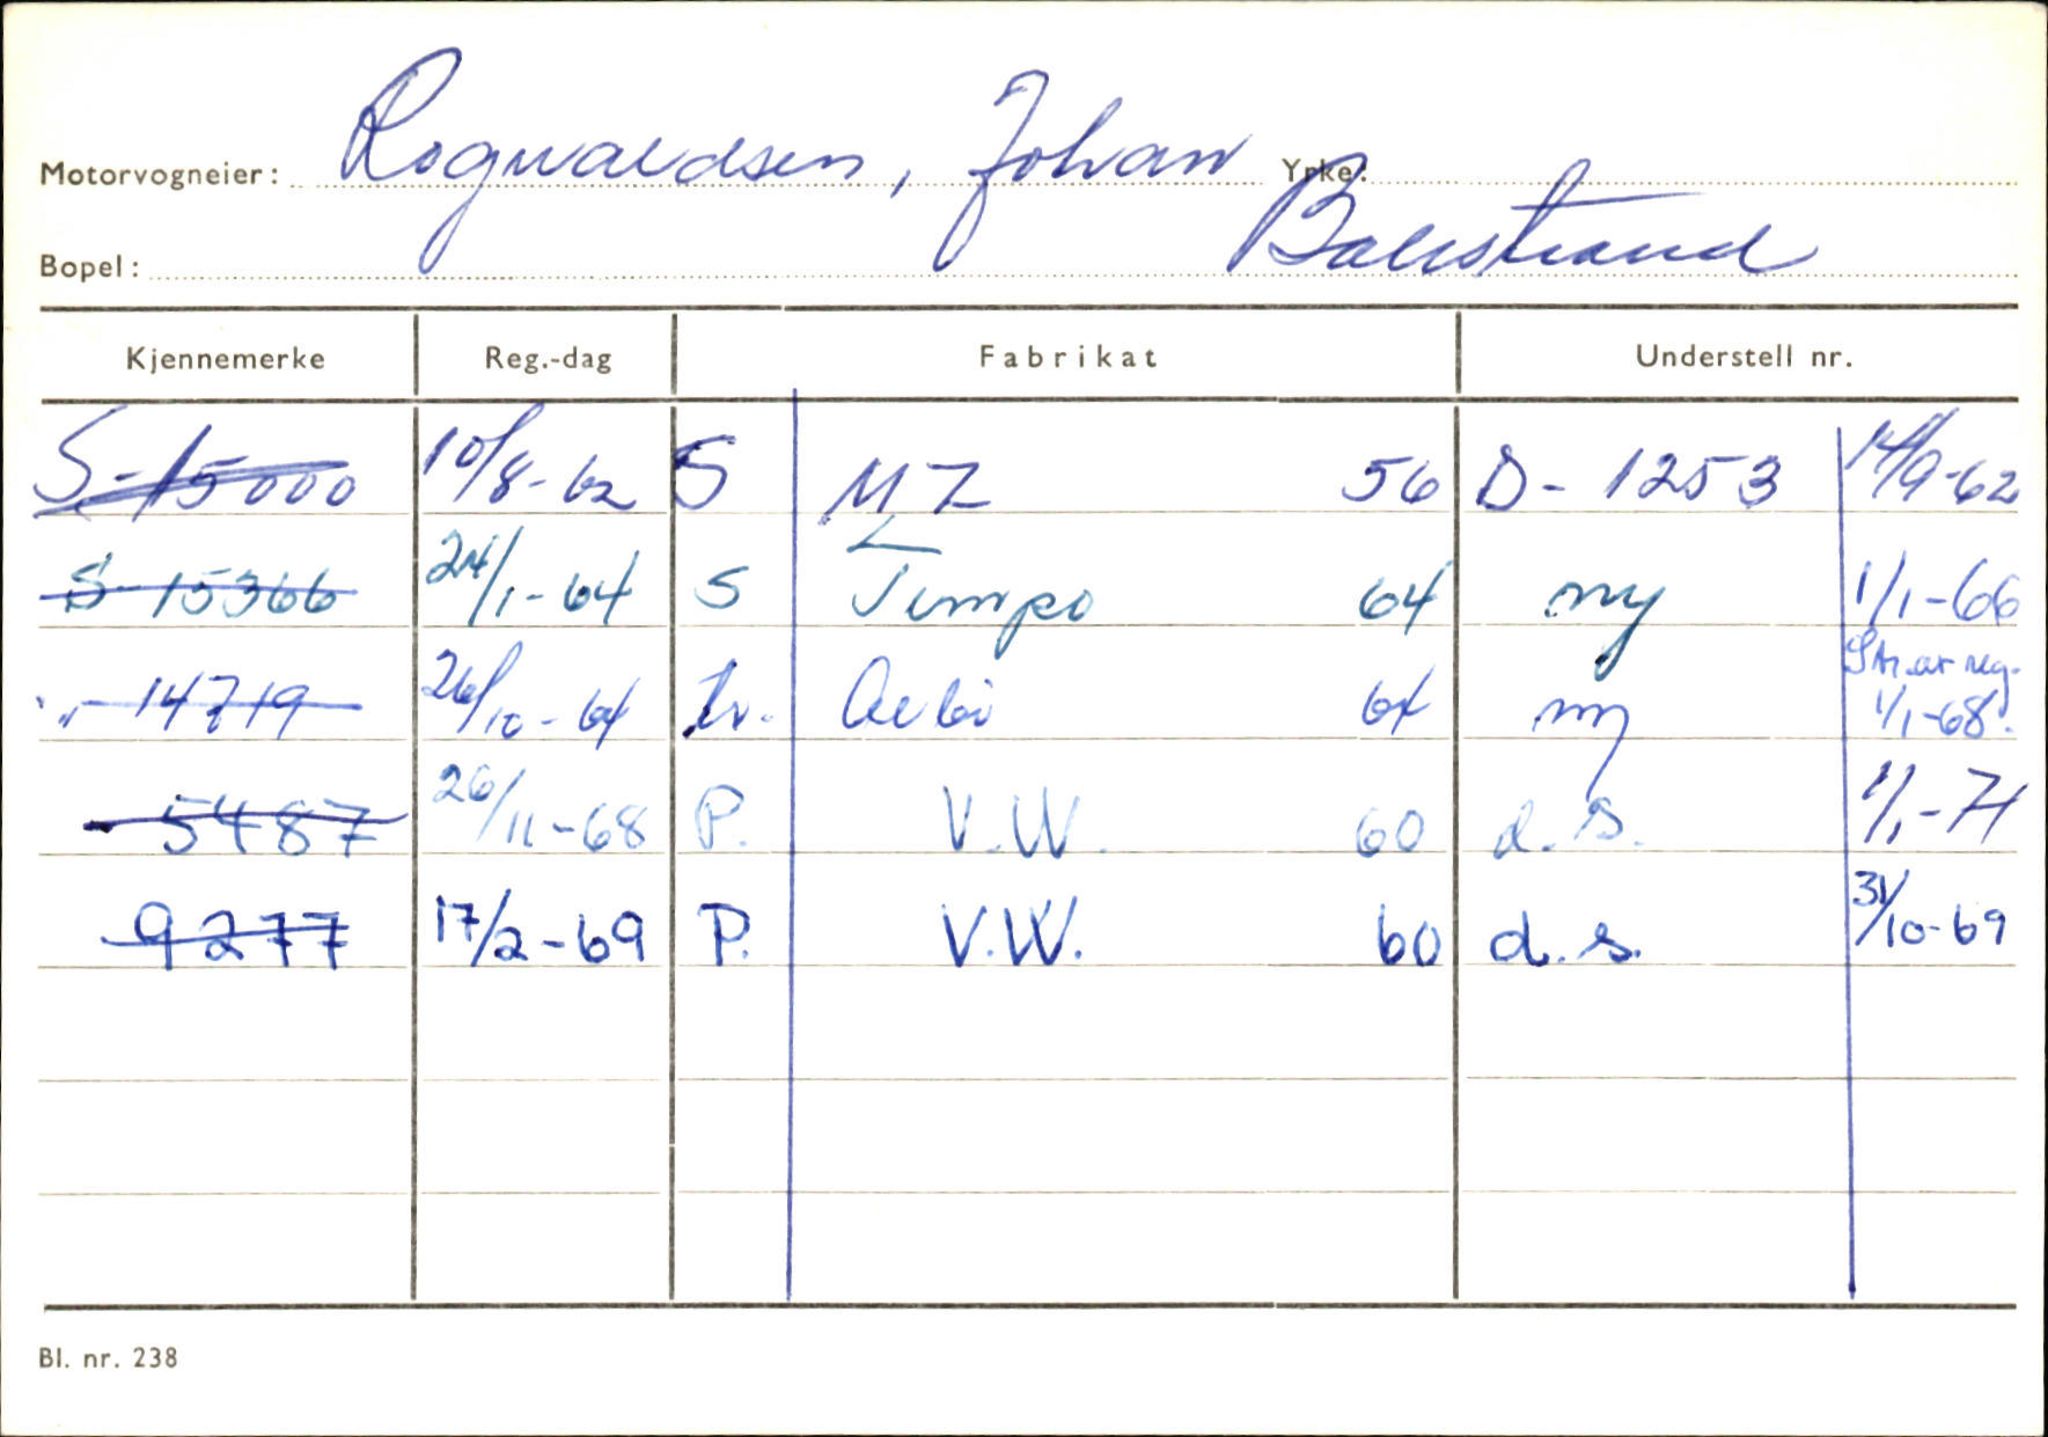 Rognvaldsen, Johan
Motorvogneier: Yrke:
Balestrand
Bopel:
Kjennemerke Reg.-dag Fabrikat Understell nr.
S-15000 10/8-62 S MZ 56 D-1253 14/9-62
S-15366 24/1-64 S Tempo 64 ny 1/1-66
Str. av reg.
"- 14719 26/10-64 tr. Aebi 64 ny 1/1-68.
- 5487 26/11-68 P. V.W. 60 d.s. 1/1-71
9277 17/2-69 P. V.W. 60 d.s. 31/10-69
Bl. nr. 238